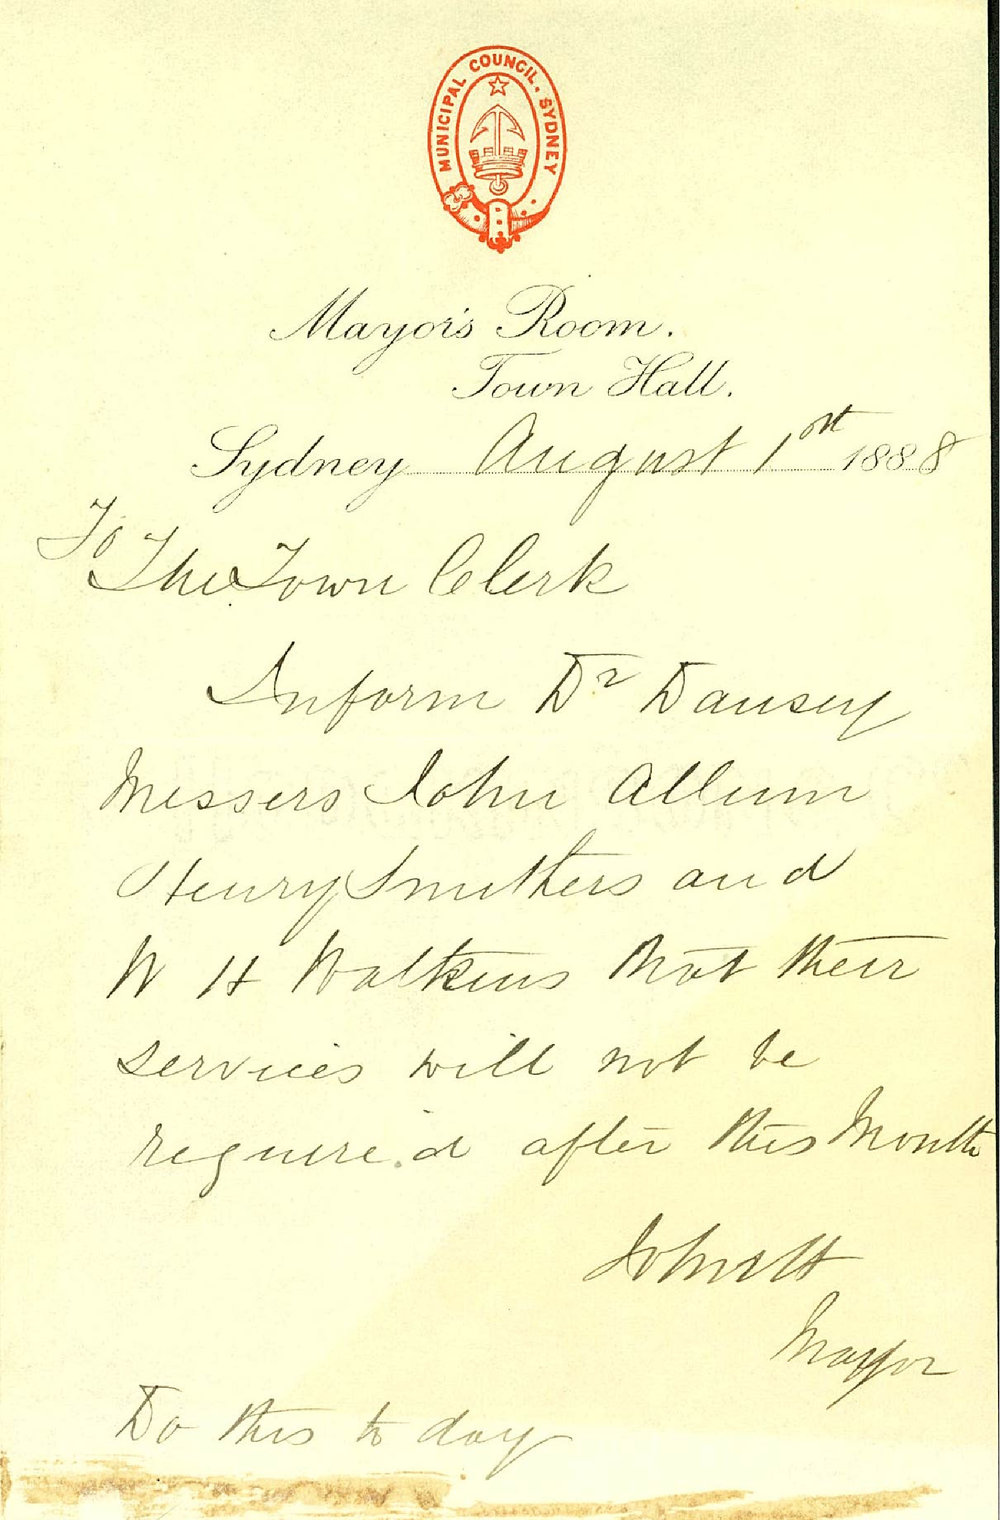 MUNICIPAL COUNCIL. SYDNEY
Mayor's Room.
Town Hall.
Sydney August 1st 1888
To
The Town Clerk
Inform Dr Dansey
Messers John Allum
Henry Smithers and
W H Watkins that their
services will not be
required after this Month
Mayor
Do this to day